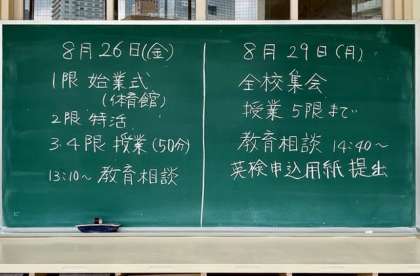 8月26日(金)
1限 始業式
(体育館)
2限 特活
3・4限 授業(50分)
13:10~ 教育相談
8月29日(月)
全校集会
授業 5限まで
教育相談 14:40~
英検申込用紙 提出